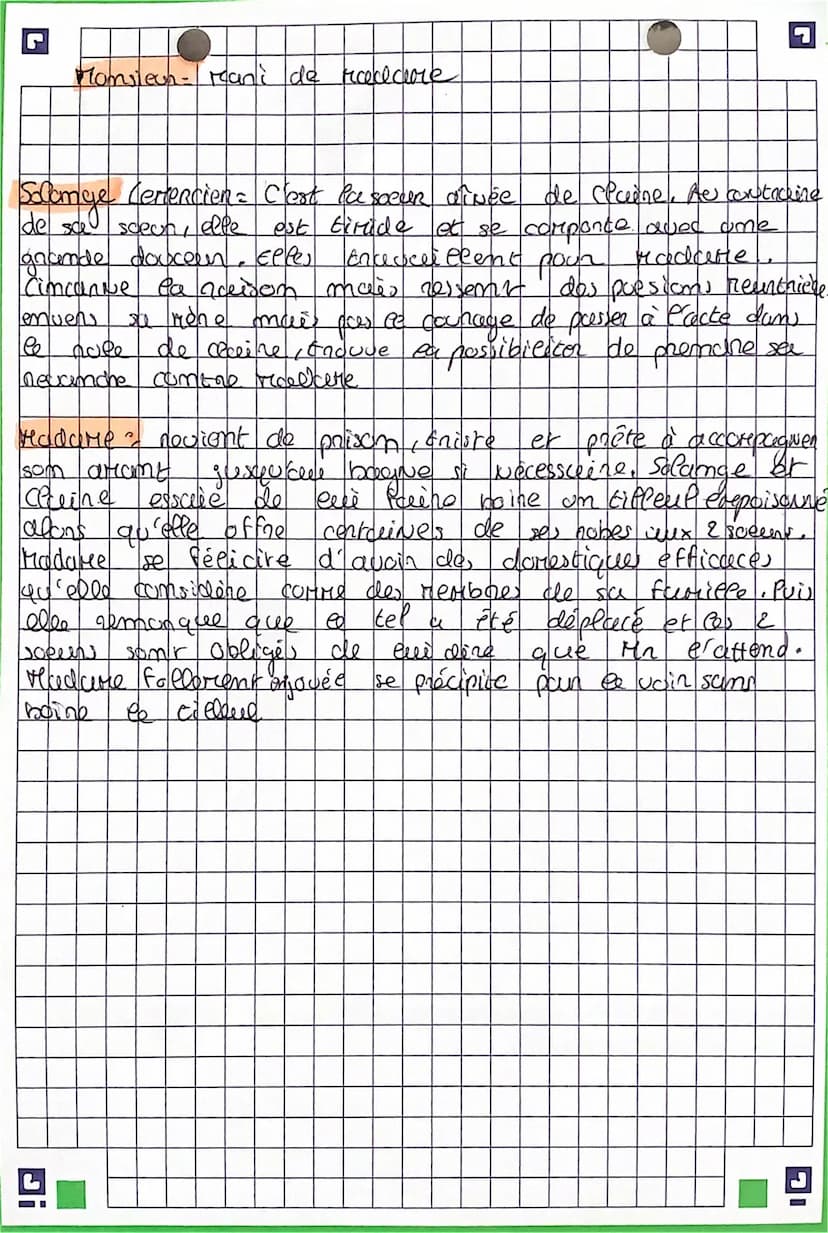 Monsieur = mari de madame
Solange Lemencier = C'est la soeur aînée de Claire. Au contraire
de sa soeur, elle est timide et se comporte avec une
grande douceur. Elles travaillent pour Madame.
incarne la raison mais ressent des pulsions meurtrière
envers sa mère mais pas le courage de passer à l'acte dans
le role de Claire, trouve la possibilité de prendre sa
revanche contre Madame
Madame = revient de prison, triste et prête à accompagner
son amant jusqu'au bagne si nécessaire. Solange et
Claire essaie de lui faire boire un tilleul empoisonné
alors qu'elle offre certaines de ses robes aux 2 soeurs.
Madame se félicite d'avoir des domestiques efficaces
qu'elle considère comme des membres de sa famille. Puis
elle remarque que le tel a été déplacé et les 2
soeurs sont obligés de lui dire que Mr l'attend.
Madame follement enjouée se précipite pour le voir sans
boire le tilleul